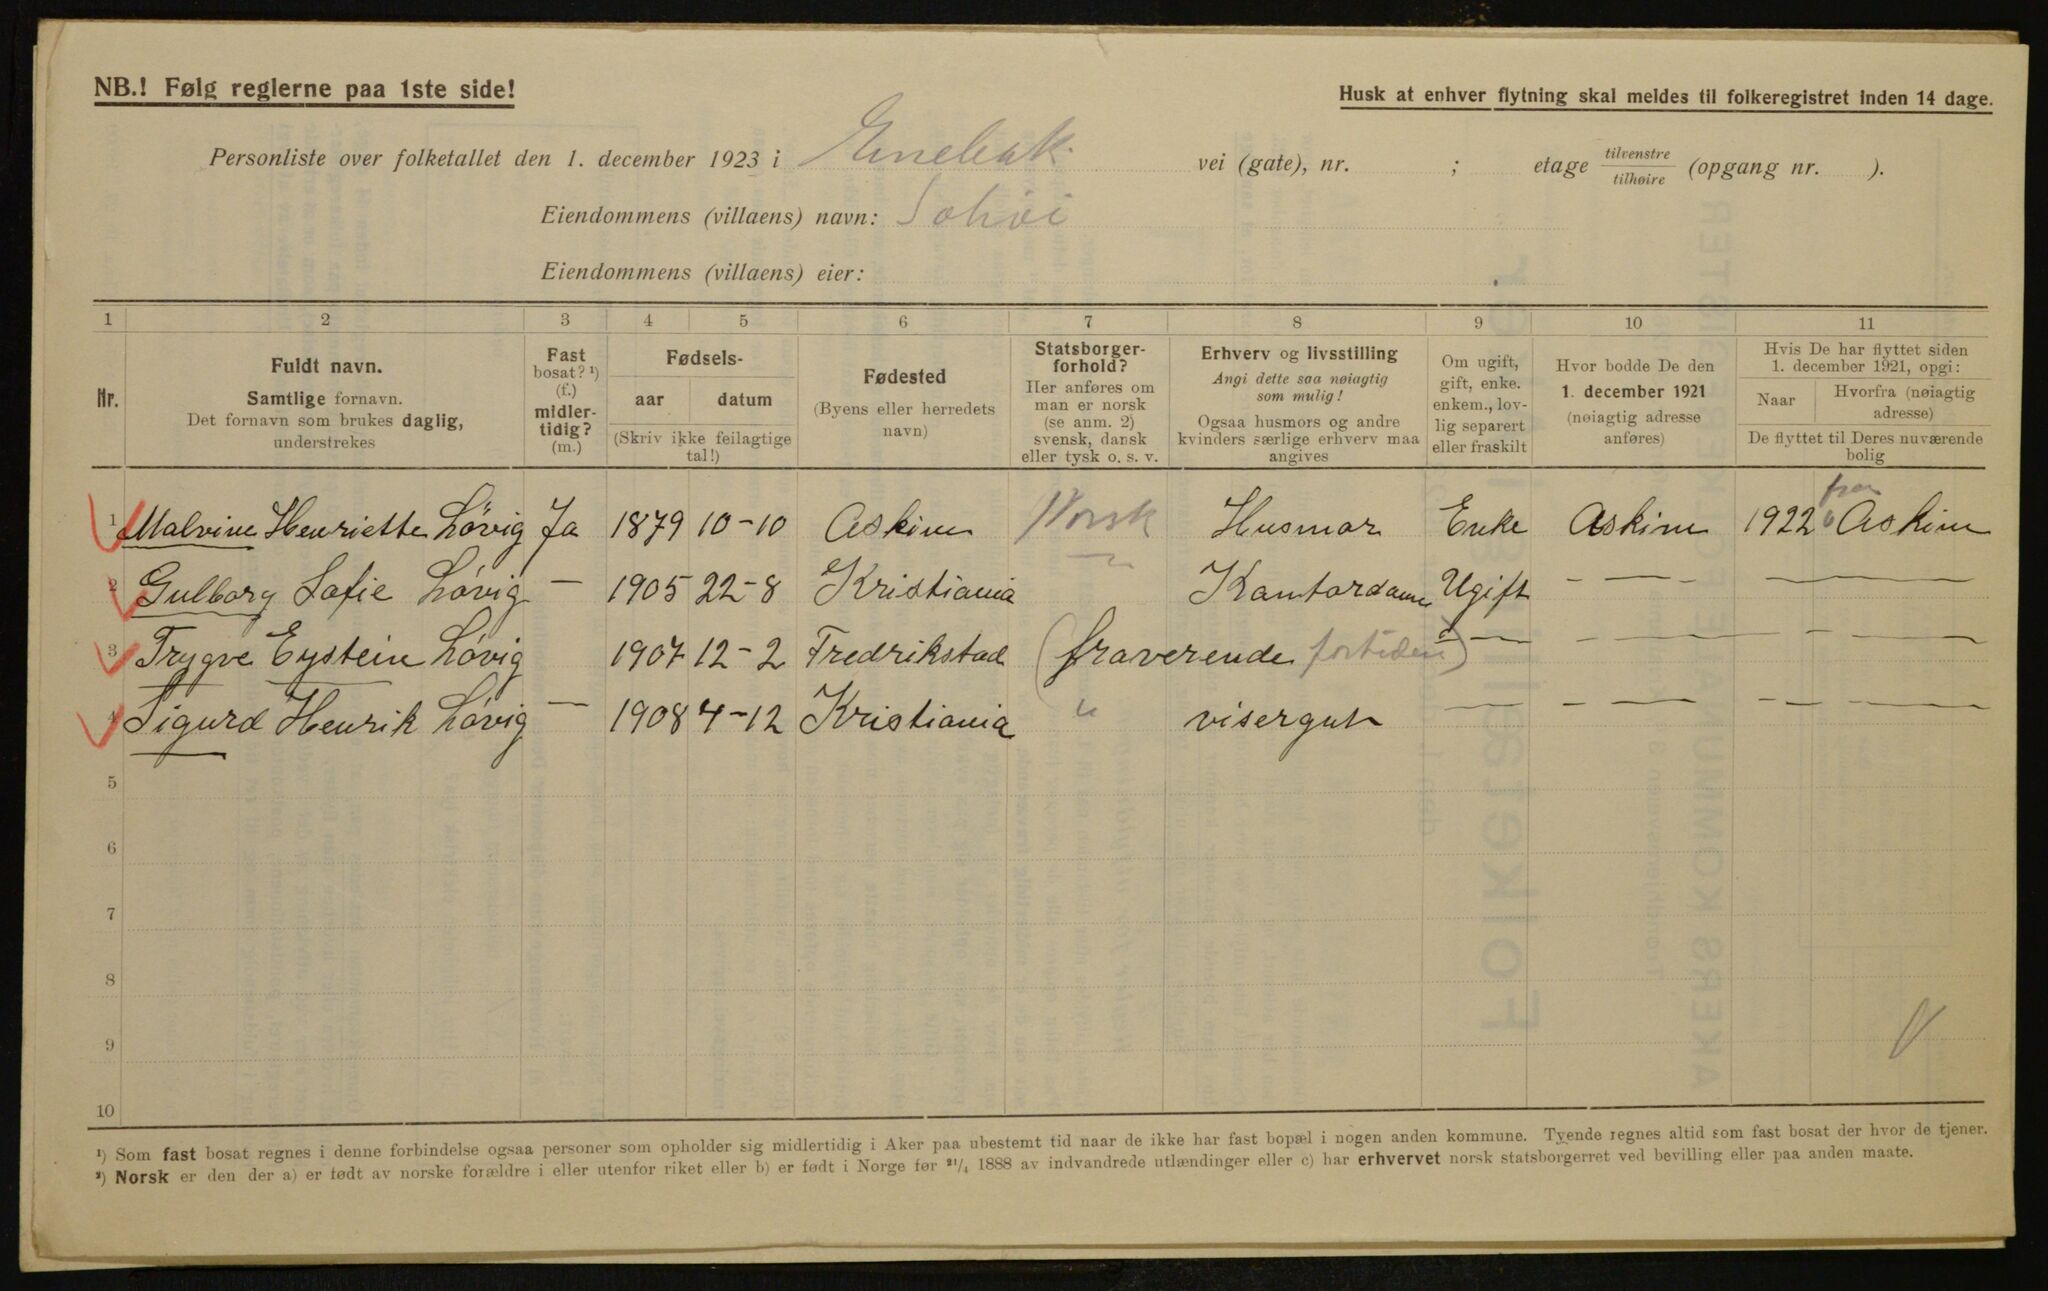 NB.! Følg reglerne paa 1ste side!
Husk at enhver flytning skal meldes til folkeregistret inden 14 dage.
Personliste over folketallet den 1. december 1923 i Enebak vei (gate), nr. ; etage tilvenstre tilhøire (opgang nr. ).
Eiendommens (villaens) navn: Solhøi
Eiendommens (villaens) eier:
1 2 3 4 5 6 7 8 9 10 11
Nr.
Fuldt navn.
Samtlige fornavn.
Det fornavn som brukes daglig,
understrekes
Fast
bosat? ¹)
(f.)
midler-
tidig?
(m.)
Fødsels-
aar datum
(Skriv ikke feilagtige
tal!)
Fødested
(Byens eller herredets
navn)
Statsborger-
forhold?
Her anføres om
man er norsk
(se anm. 2)
svensk, dansk
eller tysk o. s. v.
Erhverv og livsstilling
Angi dette saa nøiagtig
som mulig!
Ogsaa husmors og andre
kvinders særlige erhverv maa
angives
Om ugift,
gift, enke.
enkem., lov-
lig separert
eller fraskilt
Hvor bodde De den
1. december 1921
(nøiagtig adresse
anføres)
Hvis De har flyttet siden
1. december 1921, opgi:
Naar
Hvorfra (nøiagtig
adresse)
De flyttet til Deres nuværende
bolig
fra
1 Malvine Henriette Lövig Ja 1879 10-10 Askim Norsk Husmor Enke Askim 1922 Askim
2 Gulborg Sofie Lövig — 1905 22-8 Kristiania — Kantordame Ugift - — - —
3 Trygve Eystein Lövig 1907 12-2 Fredrikstad (fraverende fortiden) - — - — - —
4 Sigurd Henrik Lövig — 1908 4-12 Kristiania " visergut — - — - — - —
5
6
7
8
9
10
¹) Som fast bosat regnes i denne forbindelse ogsaa personer som opholder sig midlertidig i Aker paa ubestemt tid naar de ikke har fast bopæl i nogen anden kommune. Tyende regnes altid som fast bosat der hvor de tjener.
²) Norsk er den der a) er født av norske forældre i eller utenfor riket eller b) er født i Norge før ²¹/₄ 1888 av indvandrede utlændinger eller c) har erhvervet norsk statsborgerret ved bevilling eller paa anden maate.